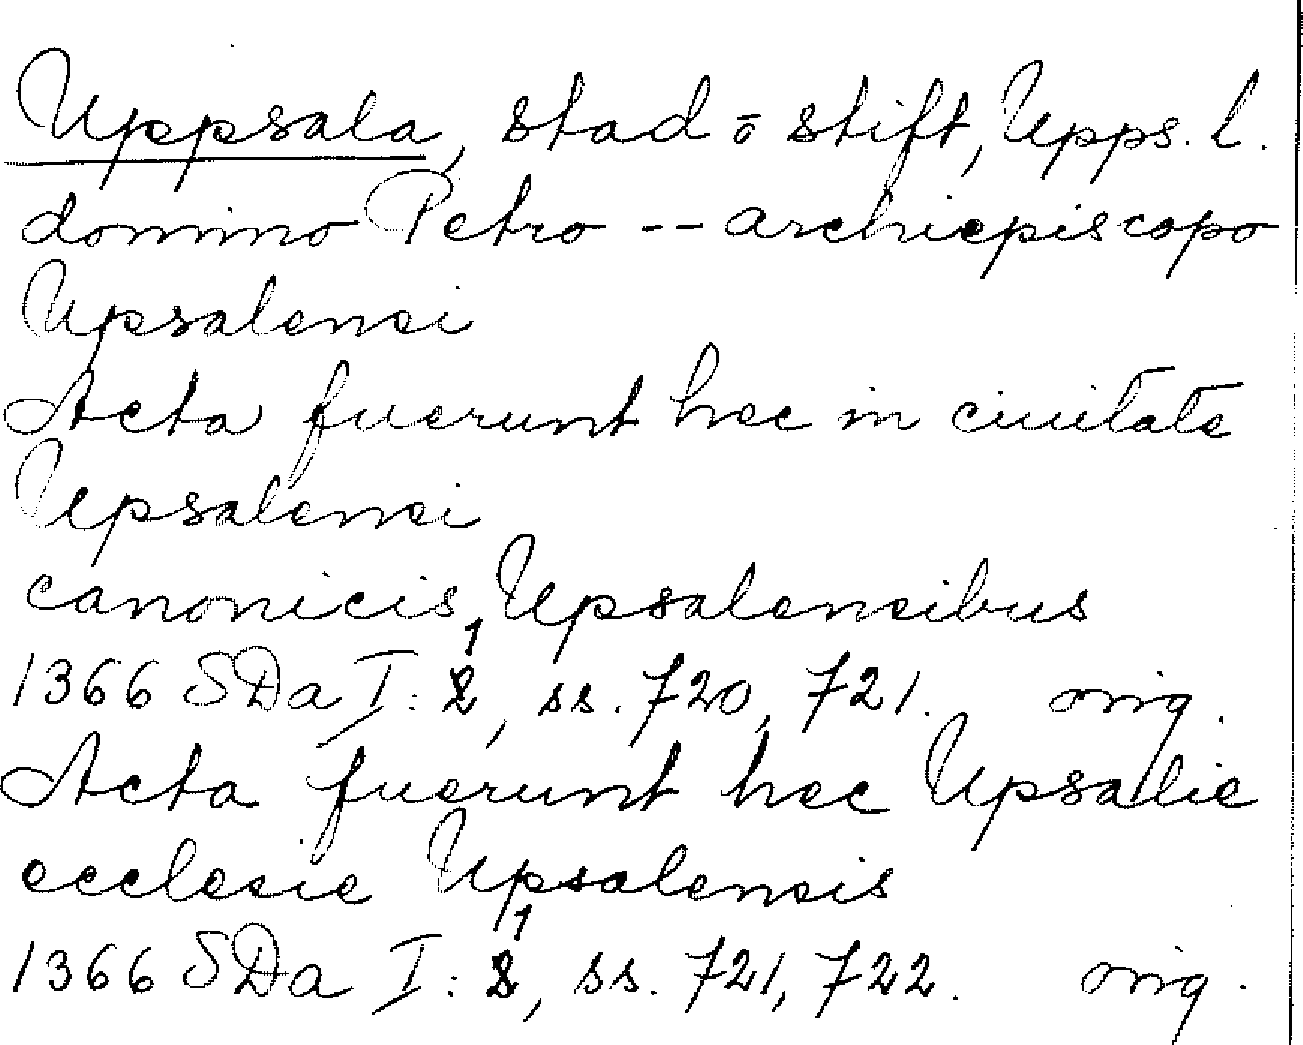 Uppsala, stad o stift, Upps. l.
domino Petro -- archiepiscopo
Upsalensi
Acta fuerunt hec in ciuitate
Upsalensi
canonicis Upsalensibus
1366 SDa I: 1, ss. 720, 721. orig.
Acta fuerunt hec Upsalie
ecclesie Upsalensis
1366 SDa I: 1, ss. 721, 722. orig.